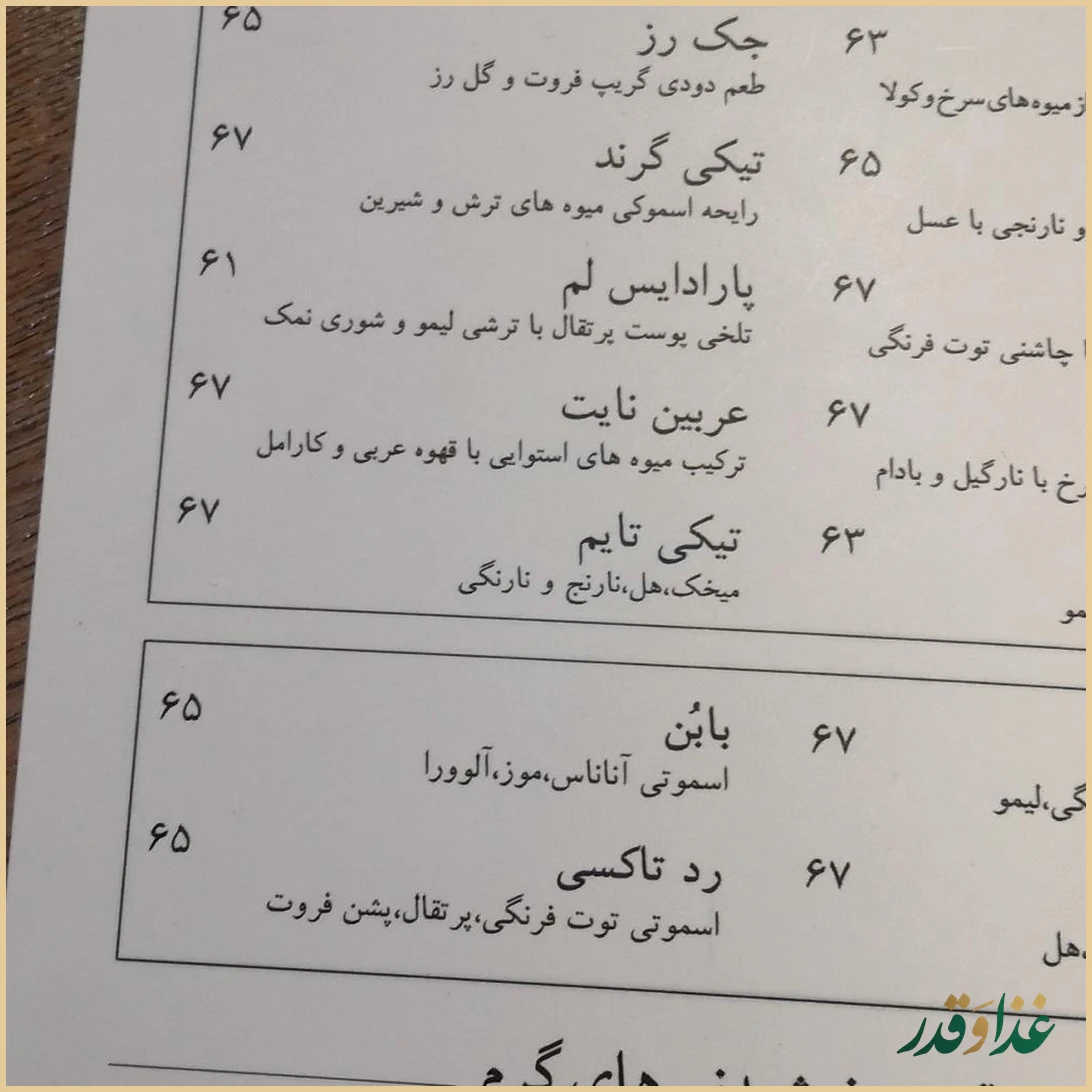 جک رز ۶۵
طعم دودی گریپ فروت و گل رز
تیکی گرند ۶۷
رایحه اسموکی میوه های ترش و شیرین
پارادایس لم ۶۱
تلخی پوست پرتقال با ترشی لیمو و شوری نمک
عربین نایت ۶۷
ترکیب میوه های استوایی با قهوه عربی و کارامل
تیکی تایم ۶۷
میخک،هل،نارنج و نارنگی
بابُن ۶۵
اسموتی آناناس،موز،آلوورا
رد تاکسی ۶۵
اسموتی توت فرنگی،پرتقال،پشن فروت
۶۳
میوه‌های سرخ و کولا
۶۵
و نارنجی با عسل
۶۷
چاشنی توت فرنگی
۶۷
با نارگیل و بادام
۶۳
۶۷
لیمو
۶۷
،هل
های گرم
غذا و قدر